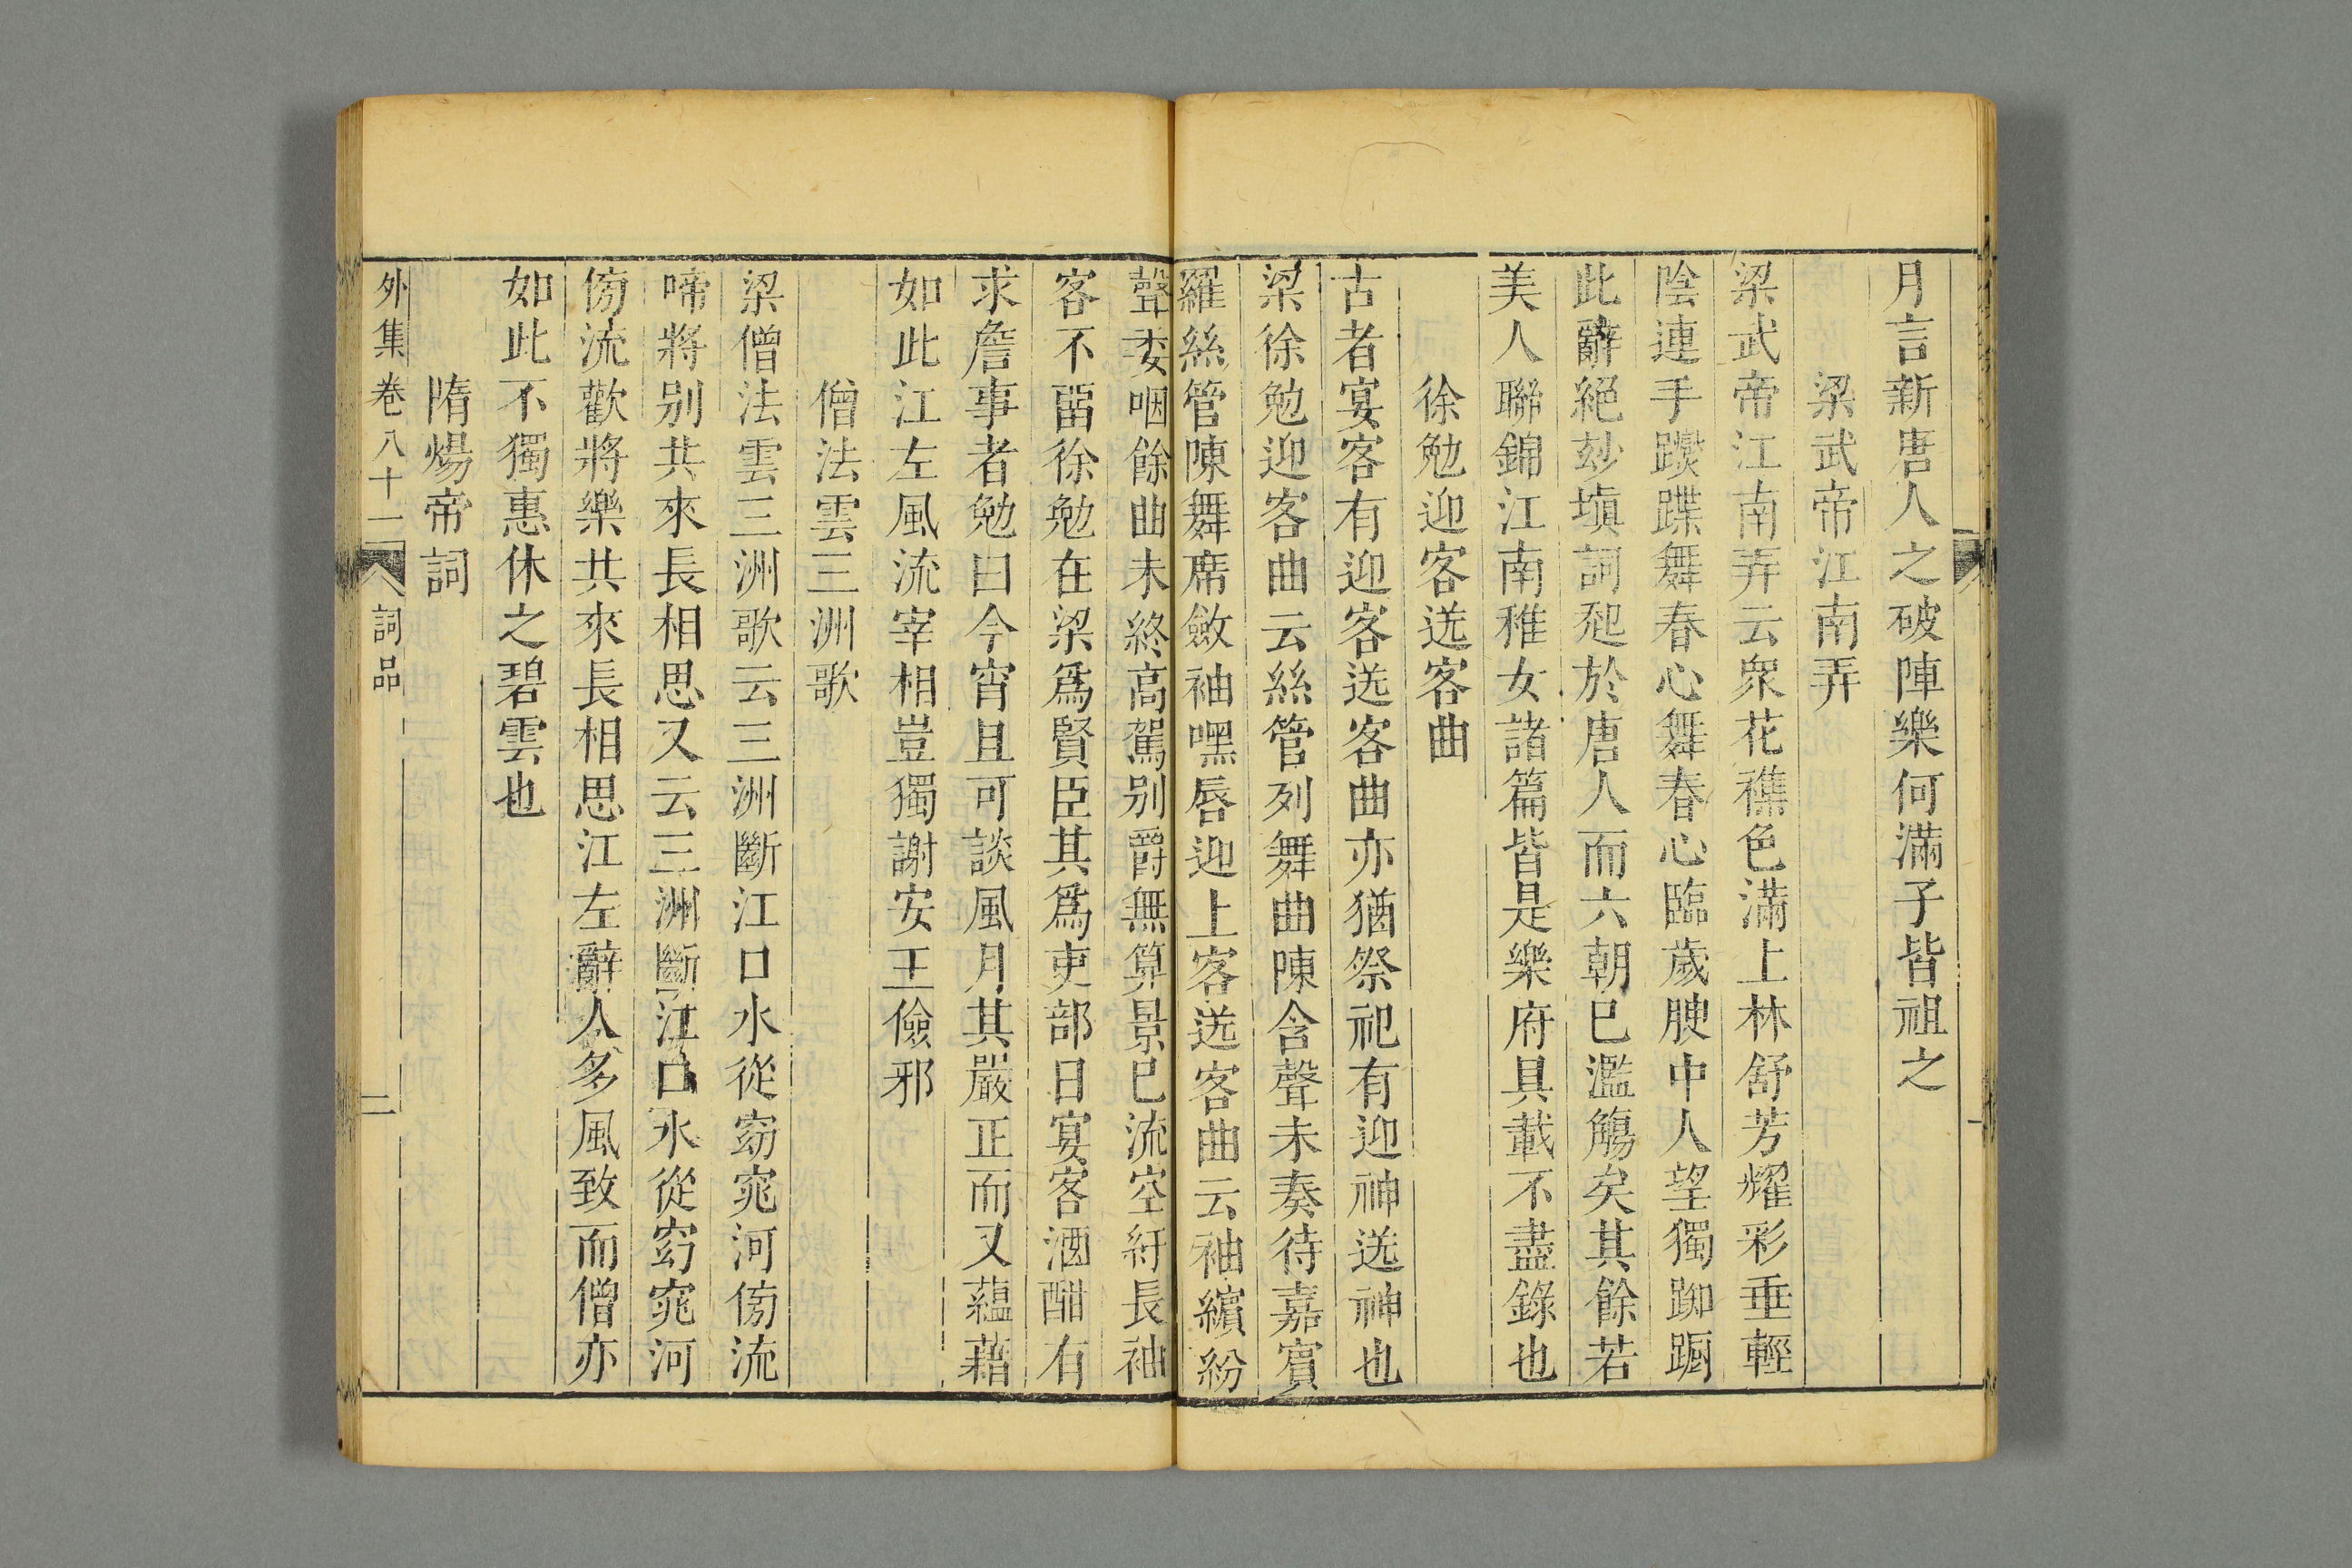 月言新唐人之破陣樂何滿子皆祖之
梁武帝江南弄
梁武帝江南弄云衆花襍色滿上林舒芳耀彩垂輕
陰連手躞蹀舞春心舞春心臨歲腴中人望獨踟蹰
此辭絕玅塡詞起於唐人而六朝巳濫觴矣其餘若
美人聯錦江南稚女諸篇皆是樂府具載不盡錄也
徐勉迎客送客曲
古者宴客有迎客送客曲亦猶祭祀有迎神送神也
梁徐勉迎客曲云絲管列舞曲陳含聲未奏待嘉賓
羅絲管陳舞席斂袖嘿唇迎上客送客曲云袖繽紛
聲委咽餘曲未終高駕别爵無算景巳流空紆長袖
客不畱徐勉在梁爲賢臣其爲吏部日宴客酒酣有
求詹事者勉曰今宵且可談風月其嚴正而又蘊藉
如此江左風流宰相豈獨謝安王儉邪
僧法雲三洲歌
梁僧法雲三洲歌云三洲斷江口水從窈窕河傍流
啼將别共來長相思又云三洲斷江口水從窈窕河
傍流歡將樂共來長相思江左辭人多風致而僧亦
如此不獨惠休之碧雲也
隋煬帝詞
外集 卷八十二 詞品 二